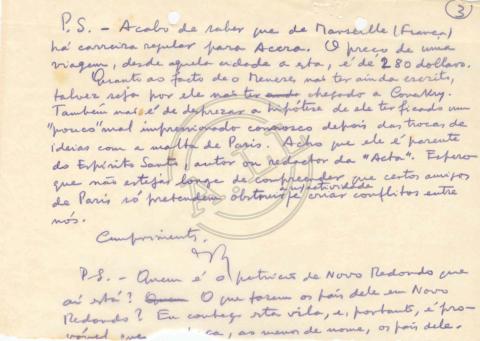 3
P.S. - Acabo de saber que de Marselle (França)
há carreira regular para Accra. O preço de uma
viagem, desde aquela cidade a esta, é de 280 dollars.
Quanto ao facto de o Meneres não ter ainda escrito,
talvez seja por ele não ter chegado a Conakry.
Também não é de desprezar a hipótese de ele ter ficado um
"pouco" mal impressionado connosco depois das trocas de
ideias com a malta de Paris. Acho que ele é parente
do Espírito Santo, autor ou redactor da "Acta". Espero
que não estejas longe de compreender que certos amigos
de Paris só pretendem obstruir a n/ actividade e criar conflitos entre
nós.
Cumprimentos,
P.S. - Quem é o patrício de Novo Redondo que
aí está? O que fazem os pais dele em Novo
Redondo? Eu conheço esta vila, e, portanto, é pro-
vável que, ao menos de nome, os pais dele.